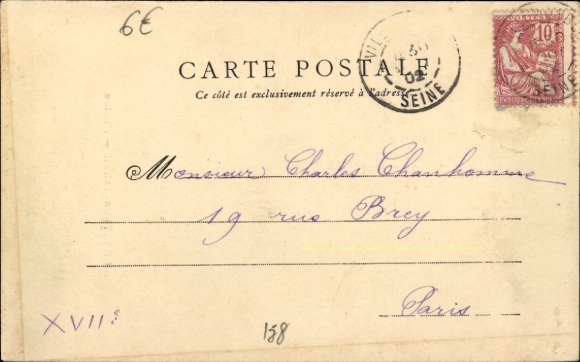 6€
CARTE POSTALE
Ce côté est exclusivement réservé à l'adresse
VIL
30
02
SEINE
POSTES
10
SEINE
Monsieur Charles Chanhomme
19 rue Brey
Paris
XVIIe
158